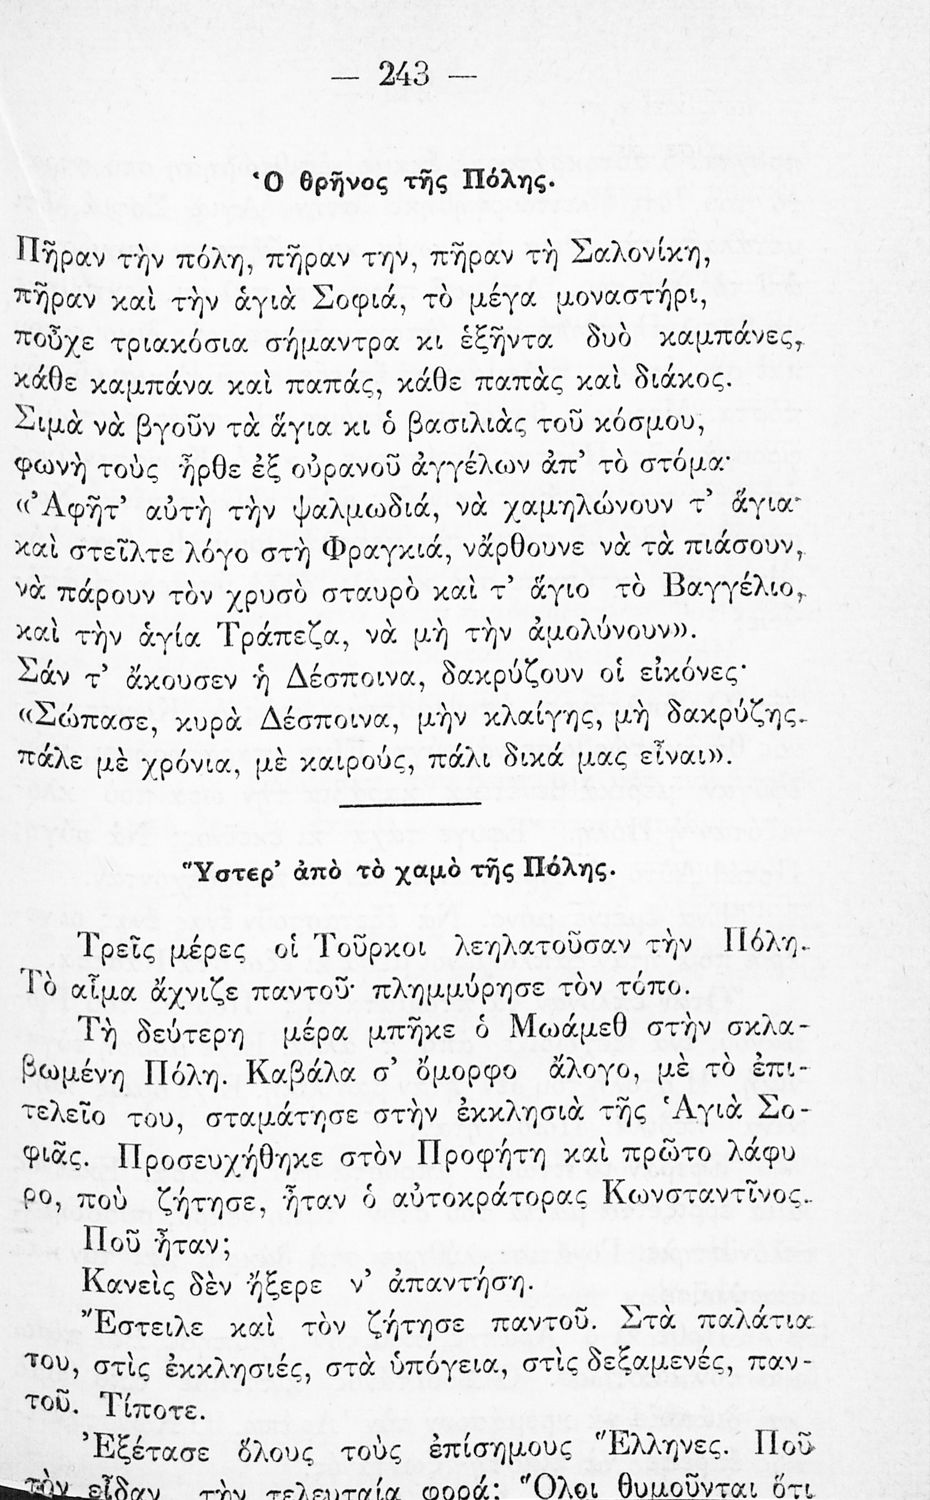 — 243 —
Ὁ θρῆνος τῆς Πόλης.
Πῆραν τὴν πόλη, πῆραν την, πῆραν τὴ Σαλονίκη,
πῆραν καὶ τὴν ἁγιὰ Σοφιά, τὸ μέγα μοναστήρι,
ποὖχε τριακόσια σήμαντρα κι ἑξῆντα δυὸ καμπάνες,
κάθε καμπάνα καὶ παπάς, κάθε παπὰς καὶ διάκος.
Σιμὰ νὰ βγοῦν τὰ ἅγια κι ὁ βασιλιὰς τοῦ κόσμου,
φωνὴ τοὺς ἦρθε ἐξ οὐρανοῦ ἀγγέλων ἀπ’ τὸ στόμα·
«’Αφῆτ’ αὐτὴ τὴν ψαλμωδιά, νὰ χαμηλώνουν τ’ ἅγια·
καὶ στεῖλτε λόγο στὴ Φραγκιά, νἄρθουνε νὰ τὰ πιάσουν,
νὰ πάρουν τὸν χρυσὸ σταυρὸ καὶ τ’ ἅγιο τὸ Βαγγέλιο,
καὶ τὴν ἁγία Τράπεζα, νὰ μὴ τὴν ἀμολύνουν».
Σάν τ’ ἄκουσεν ἡ Δέσποινα, δακρύζουν οἱ εἰκόνες·
«Σώπασε, κυρὰ Δέσποινα, μὴν κλαίγης, μὴ δακρύζης.
πάλε μὲ χρόνια, μὲ καιρούς, πάλι δικά μας εἶναι».
Ὕστερ’ ἀπὸ τὸ χαμὸ τῆς Πόλης.
Τρεῖς μέρες οἱ Τοῦρκοι λεηλατοῦσαν τὴν Πόλη.
Τὸ αἷμα ἄχνιζε παντοῦ· πλημμύρησε τὸν τόπο.
Τὴ δεύτερη μέρα μπῆκε ὁ Μωάμεθ στὴν σκλα-
βωμένη Πόλη. Καβάλα σ’ ὄμορφο ἄλογο, μὲ τὸ ἐπι-
τελεῖο του, σταμάτησε στὴν ἐκκλησιὰ τῆς Ἁγιὰ Σο-
φιᾶς. Προσευχήθηκε στὸν Προφήτη καὶ πρῶτο λάφυ
ρο, ποὺ ζήτησε, ἦταν ὁ αὐτοκράτορας Κωνσταντῖνος.
Ποῦ ἦταν;
Κανεὶς δὲν ἤξερε ν’ ἀπαντήση.
Ἔστειλε καὶ τὸν ζήτησε παντοῦ. Στὰ παλάτια
του, στὶς ἐκκλησιές, στὰ ὑπόγεια, στὶς δεξαμενές, παν-
τοῦ. Τίποτε.
Ἐξέτασε ὅλους τοὺς ἐπίσημους Ἕλληνες. Ποῦ
τὸν εἶδαν τὴν τελευταία φορά; Ὅλοι θυμοῦνται ὅτι